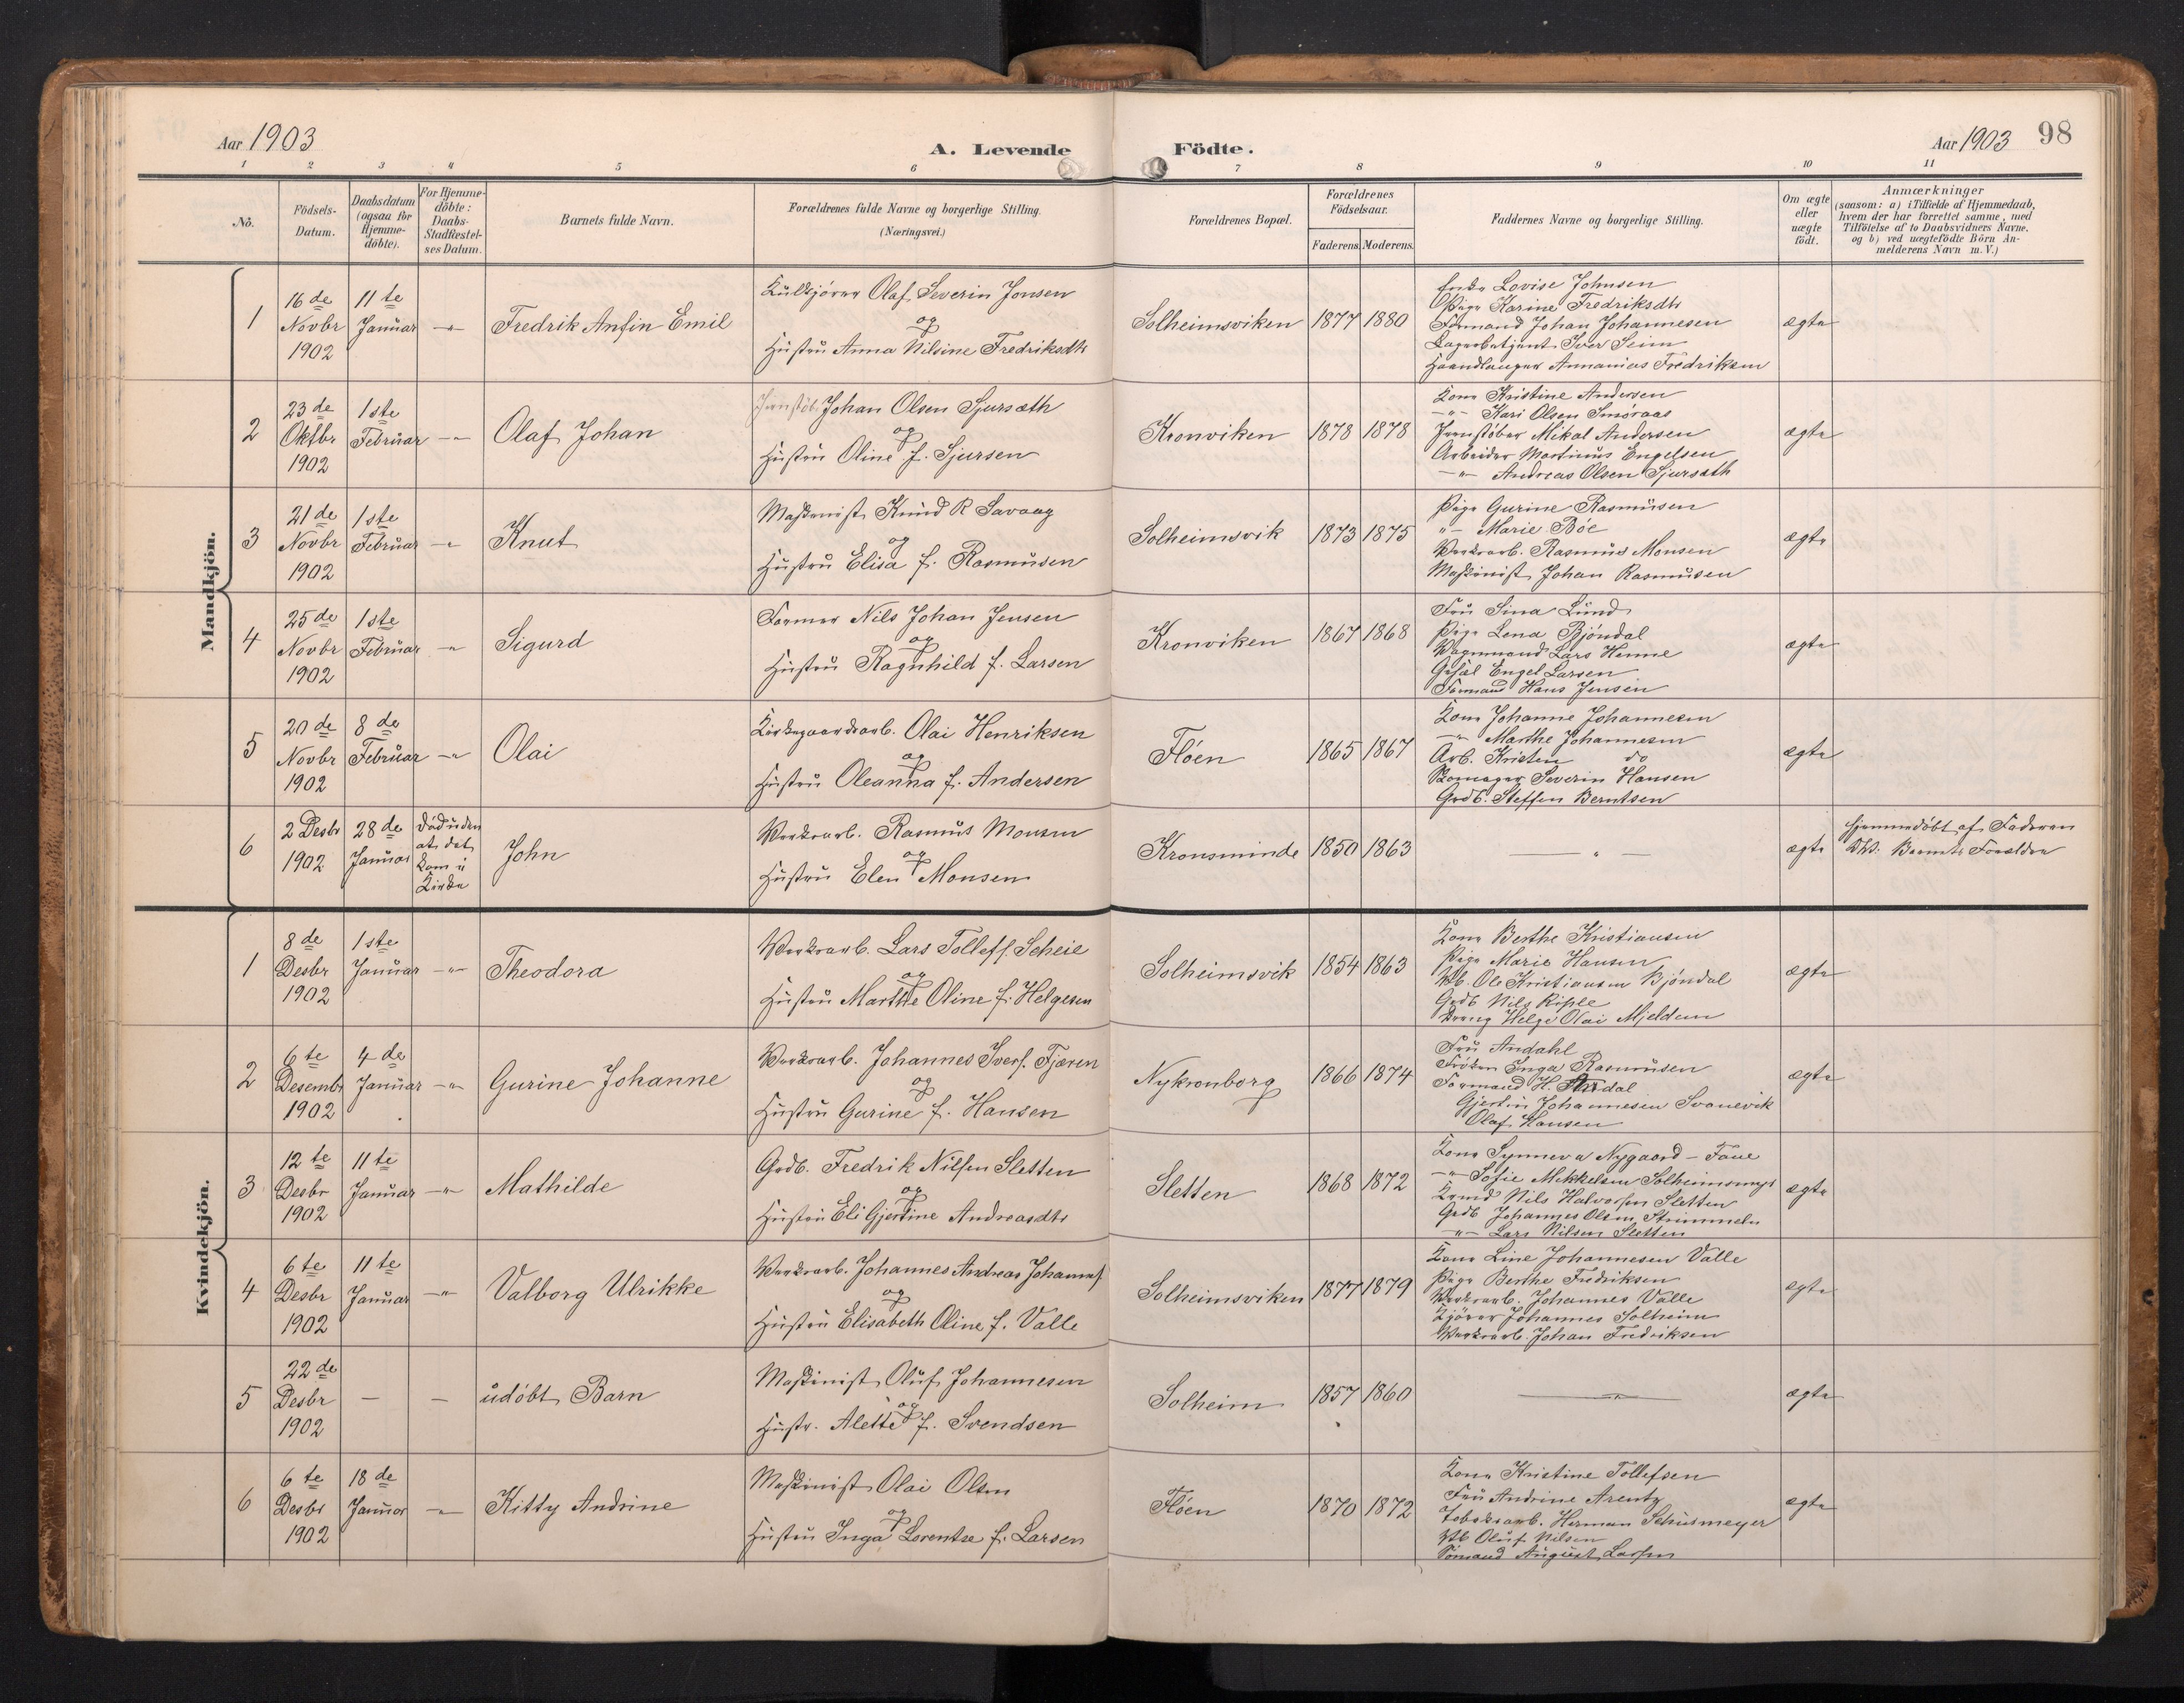 Aar 1903
A. Levende Födte.
Aar 1903 98
1 2 3 4 5 6 7 8 9 10 11
No.
Födsels-Datum.
Daabsdatum (ogsaa for Hjemme-döbte).
For Hjemme-döbte: Daabs-Stadfestel-ses Datum.
Barnets fulde Navn.
Forældrenes fulde Navne og borgerlige Stilling.
(Næringsvei.)
Forældrenes Bopæl.
Forældrenes Födselsaar.
Faderens. Moderens.
Faddernes Navne og borgerlige Stilling.
Om ægte eller uægte födt.
Anmærkninger
(saasom: a) i Tilfælde af Hjemmedaab,
hvem der har forrettet samme, med
Tilföielse af to Daabsvidners Navne.
og b) ved uægtefödte Börn An-
melderens Navn m.V.)
Mandkjön.
1
16 de Novbr 1902
11 te Januar
-"-
Fredrik Anfin Emil
Kulkjörer Olaf Severin Jonsen
og
Hustru Anna Nilsine Fredriksdtr
Solheimsviken
1877 1880
Enke Lovise Johnsen
Pige Karine Fredriksdtr
Formand Johan Johannesen
Lagerbetjent Iver Seim
Haandlanger Annanias Fredriksen
ægte
2
23 de Oktbr 1902
1 ste Februar
-"-
Olaf Johan
Jernstöb. Johan Olsen Sjursæth
og
Hustru Oline f. Sjursen
Kronviken
1878 1878
Kone Kristine Andersen
-"- Kari Olsen Smöraas
Jernstöber Mikal Andersen
Arbeider Martinus Engelsen
-"- Andreas Olsen Sjursæth
ægte
3
21 de Novbr 1902
1 ste Februar
-"-
Knut
Maskinist Knud R Savaag
og
Hustru Elisa f. Rasmussen
Solheimsvik
1873 1875
Pige Gurine Rasmussen
"- Marie Böe
Værksarb. Rasmus Monsen
Maskinist Johan Rasmussen
ægte
4
25 de Novbr 1902
1 ste Februar
-"-
Sigurd
Former Nils Johan Jensen
og
Hustru Ragnhild f. Larsen
Kronviken
1867 1868
Fru Sina Lund
Pige Lena Bjöndal
Vognmand Lars Henne
Gesel Engel Larsen
Formand Hans Jensen
ægte
5
20 de Novbr 1902
8 de Februar
-"-
Olai
Kirkegaardsarb. Olai Henriksen
og
Hustru Oleanna f. Andersen
Flöen
1865 1867
Kone Johanne Johannesen
-"- Marthe Johannesen
Arb. Kristen do
Skomager Severin Hansen
Grdb. Steffen Berntsen
ægte
6
2 Desbr 1902
28 de Januar
Död uden at det kom i Kirke
John
Værksarb. Rasmus Monsen
og
Hustru Elen Monsen
Kronsminde
1850 1863
— " —
ægte
Hjemmedöbt af Faderen
Barnets Forældre
Kvindekjön.
1
8 de Desbr 1902
1 ste Januar
-"-
Theodora
Værksarb. Lars Tollefs. Scheie
og
Hustru Marthe Oline f. Helgesen
Solheimsvik
1854 1863
Kone Berthe Kristiansen
Pige Marie Hansen
Vb. Ole Kristiansen Bjöndal
Grdb Nils Riple
Dreng Helge Olai Mjeldem
ægte
2
6 te Desembr 1902
4 de Januar
-"-
Gurine Johanne
Værksarb. Johannes Ivers. Fjæren
og
Hustru Gurine f. Hansen
Nykronborg
1866 1874
Fru Andahl
Fröken Inga Rasmussen
Formand H. Andal
Gjertin Johannesen Svanevik
Olaf Hansen
ægte
3
12 te Desbr 1902
11 te Januar
-"-
Mathilde
Grdb. Fredrik Nilsen Sletten
og
Hustru Eli Gjertine Andreasdtr
Sletten
1868 1872
Kone Synneva Nygaard - Fane
-"- Sofie Mikkelsen Solheimsmyr
Nils Halvorsen Sletten
Grdb Johannes Olsen Strimmeln
"- Lars Nilsen Sletten
ægte
4
6 te Desbr 1902
11 te Januar
-"-
Valborg Ulrikke
Værksarb. Johannes Andreas Johannes.
og
Hustru Elisabeth Oline f. Valle
Solheimsviken
1877 1879
Kone Line Johannesen Valle
Pige Berthe Fredriksen
Værksarb. Johannes Valle
Kjörer Johannes Solheim
Værksarb. Johan Fredriksen
ægte
5
22 de Desbr 1902
-
-
udöbt Barn
Maskinist Oluf Johannesen
og
Hustr. Alette f. Svendsen
Solheim
1857 1860
— " —
ægte
6
6 te Desbr 1902
18 de Januar
-"-
Kitty Andrine
Maskinist Olai Olsen
og
Hustru Inga Lorentse f. Larsen
Flöen
1870 1872
Kone Kristine Tollefsen
Fru Andrine Arentz
Tobaksarb. Herman Schusmeyer
Vb Oluf Nilsen
Sömand August Larsen
ægte